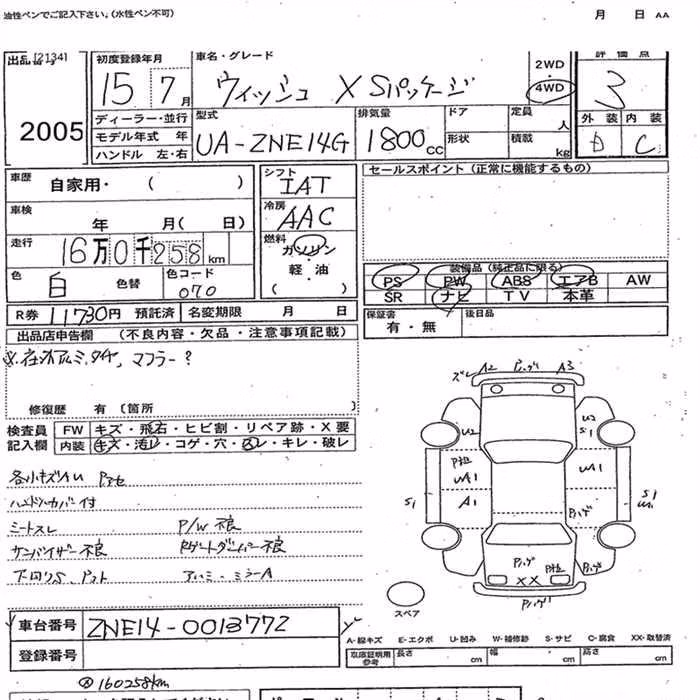 油性ペンでご記入下さい。(水性ペン不可) 月 日 AA
出品 [2134]
2005
初度登録年月
15 7月
車名・グレード
ウィッシュ X Sパッケージ
2WD
・
4WD
評価点
3
外装 内装
D C
ディーラー・並行
モデル年式 年
ハンドル 左・右
型式
UA-ZNE14G
排気量
1800cc
ドア
形状
定員 人
積載 kg
車歴 自家用・( )
車検 年 月( 日)
走行 16万0千258km
色 白 色替 色コード 070
シフト
IAT
冷房
AAC
燃料
ガソリン
軽・油
( ・ )
セールスポイント (正常に機能するもの)
装備品 (純正品に限る)
PS PW ABS エアB AW
SR ナビ TV 本革
R券 11730円 預託済 名変期限 月 日
保証書 有・無 後日品
出品店申告欄 (不良内容・欠品・注意事項記載)
マフラー?
修復歴 有 〔箇所 〕
検査員記入欄
FW キズ・飛石・ヒビ割・リペア跡・X要
内装 キズ・汚レ・コゲ・穴・スレ・キレ・破レ
各小キズAU Pアセ
ハンドルカバー付
シートスレ P/W不良
サンバイザー不良 Rゲートダンパー不良
下回りS
ズレ A2 Pハゲ A3
U2
U2
S1
P粒
UA1
A1
UA1
Pハゲ
S1
S1
Pハゲ
P粒
XX
Pハゲ
Pハゲ
スペア
車台番号 ZNE14-0013772
登録番号
A-線キズ E-エクボ U-凹み W-補修跡 S-サビ C-腐食 XX-取替済
車庫証明用参考 長さ cm 幅 cm 高さ cm
160258km